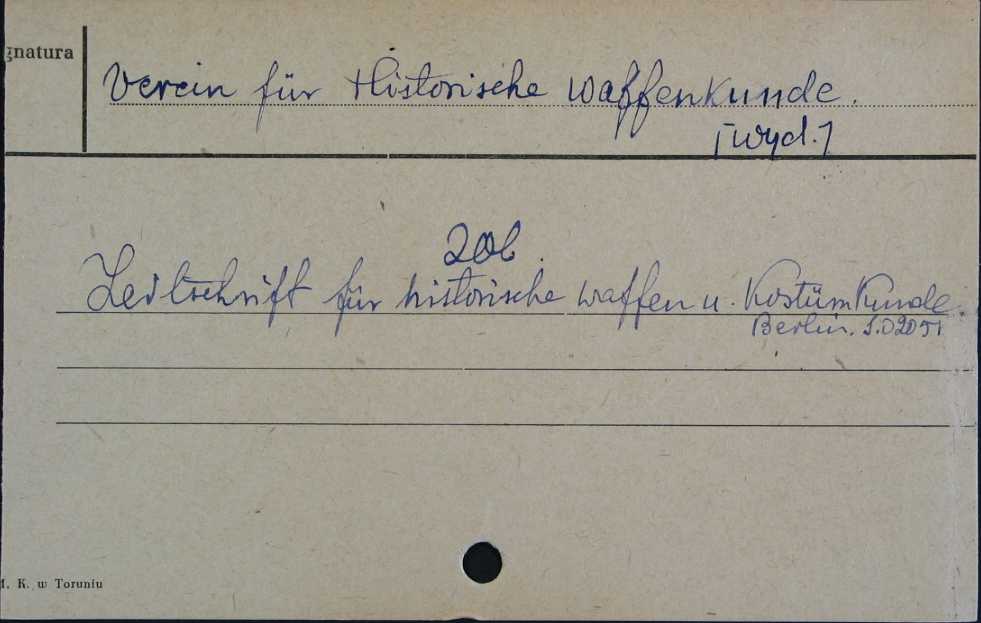 gnatura
Verein für Historische Waffenkunde.
[wyd.]
zob.
Zeitschrift für historische Waffen u. Kostümkunde.
Berlin.
K. w Toruniu